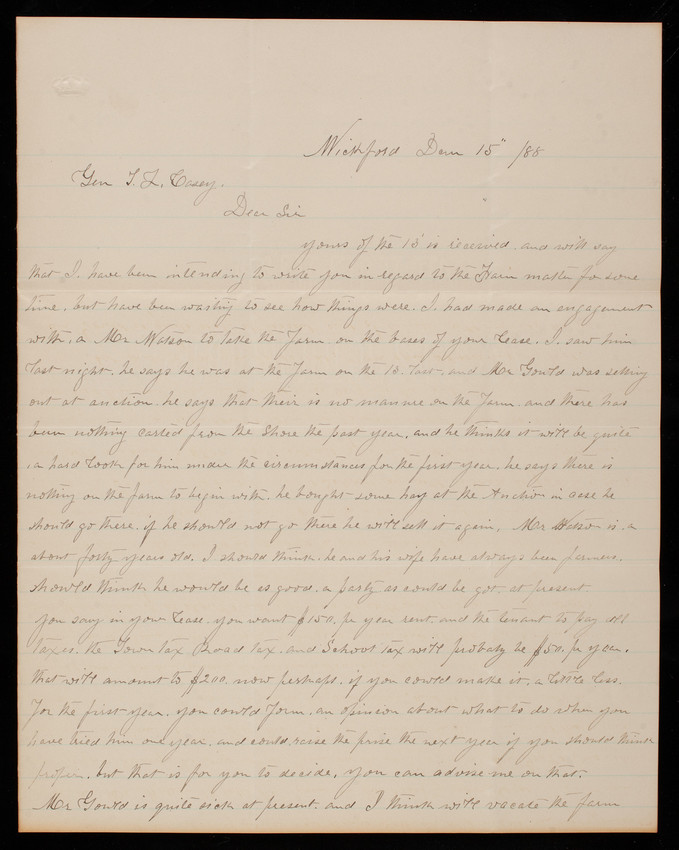 Wickford Dem 15" /88
Gen T. L. Casey.
Dear Sir
yours of the 13 is received. and will say
that I. have been intending to write you in regard to the Farm matter for some
time. but have been waiting to see how things were. I had made an engagement
with. a Mr Watson to take the Farm on the bases of your Lease. I. saw him
last night. he says he was at the Farm on the 13. last. and Mr Gould was selling
out at auction. he says that their is no manure on the Farm. and there has
been nothing carted from the Shore the past year. and he thinks it will be quite
a hard look for him under the circumstances for the first year. he says there is
nothing on the farm to begin with. he bought some hay at the Auction in case he
should go there. if he should not go there he will sell it again. Mr Watson is a
about forty years old. I should think. he and his wife have always been farmers.
should think he would be as good. a party as could be got. at present.
you say in your Lease. you want $150. pr year rent. and the tenant to pay all
taxes. the Town tax Road tax. and School tax will probaly be $50. pr year.
that will amount to $200. now perhaps. if you could make it. a little less.
for the first year. you could form. an opinion about what to do when you
have tried him one year. and could raise the price the next year if you should think
proper. but that is for you to decide. you can advise me on that.
Mr Gould is quite sick at present. and I think will vacate the farm